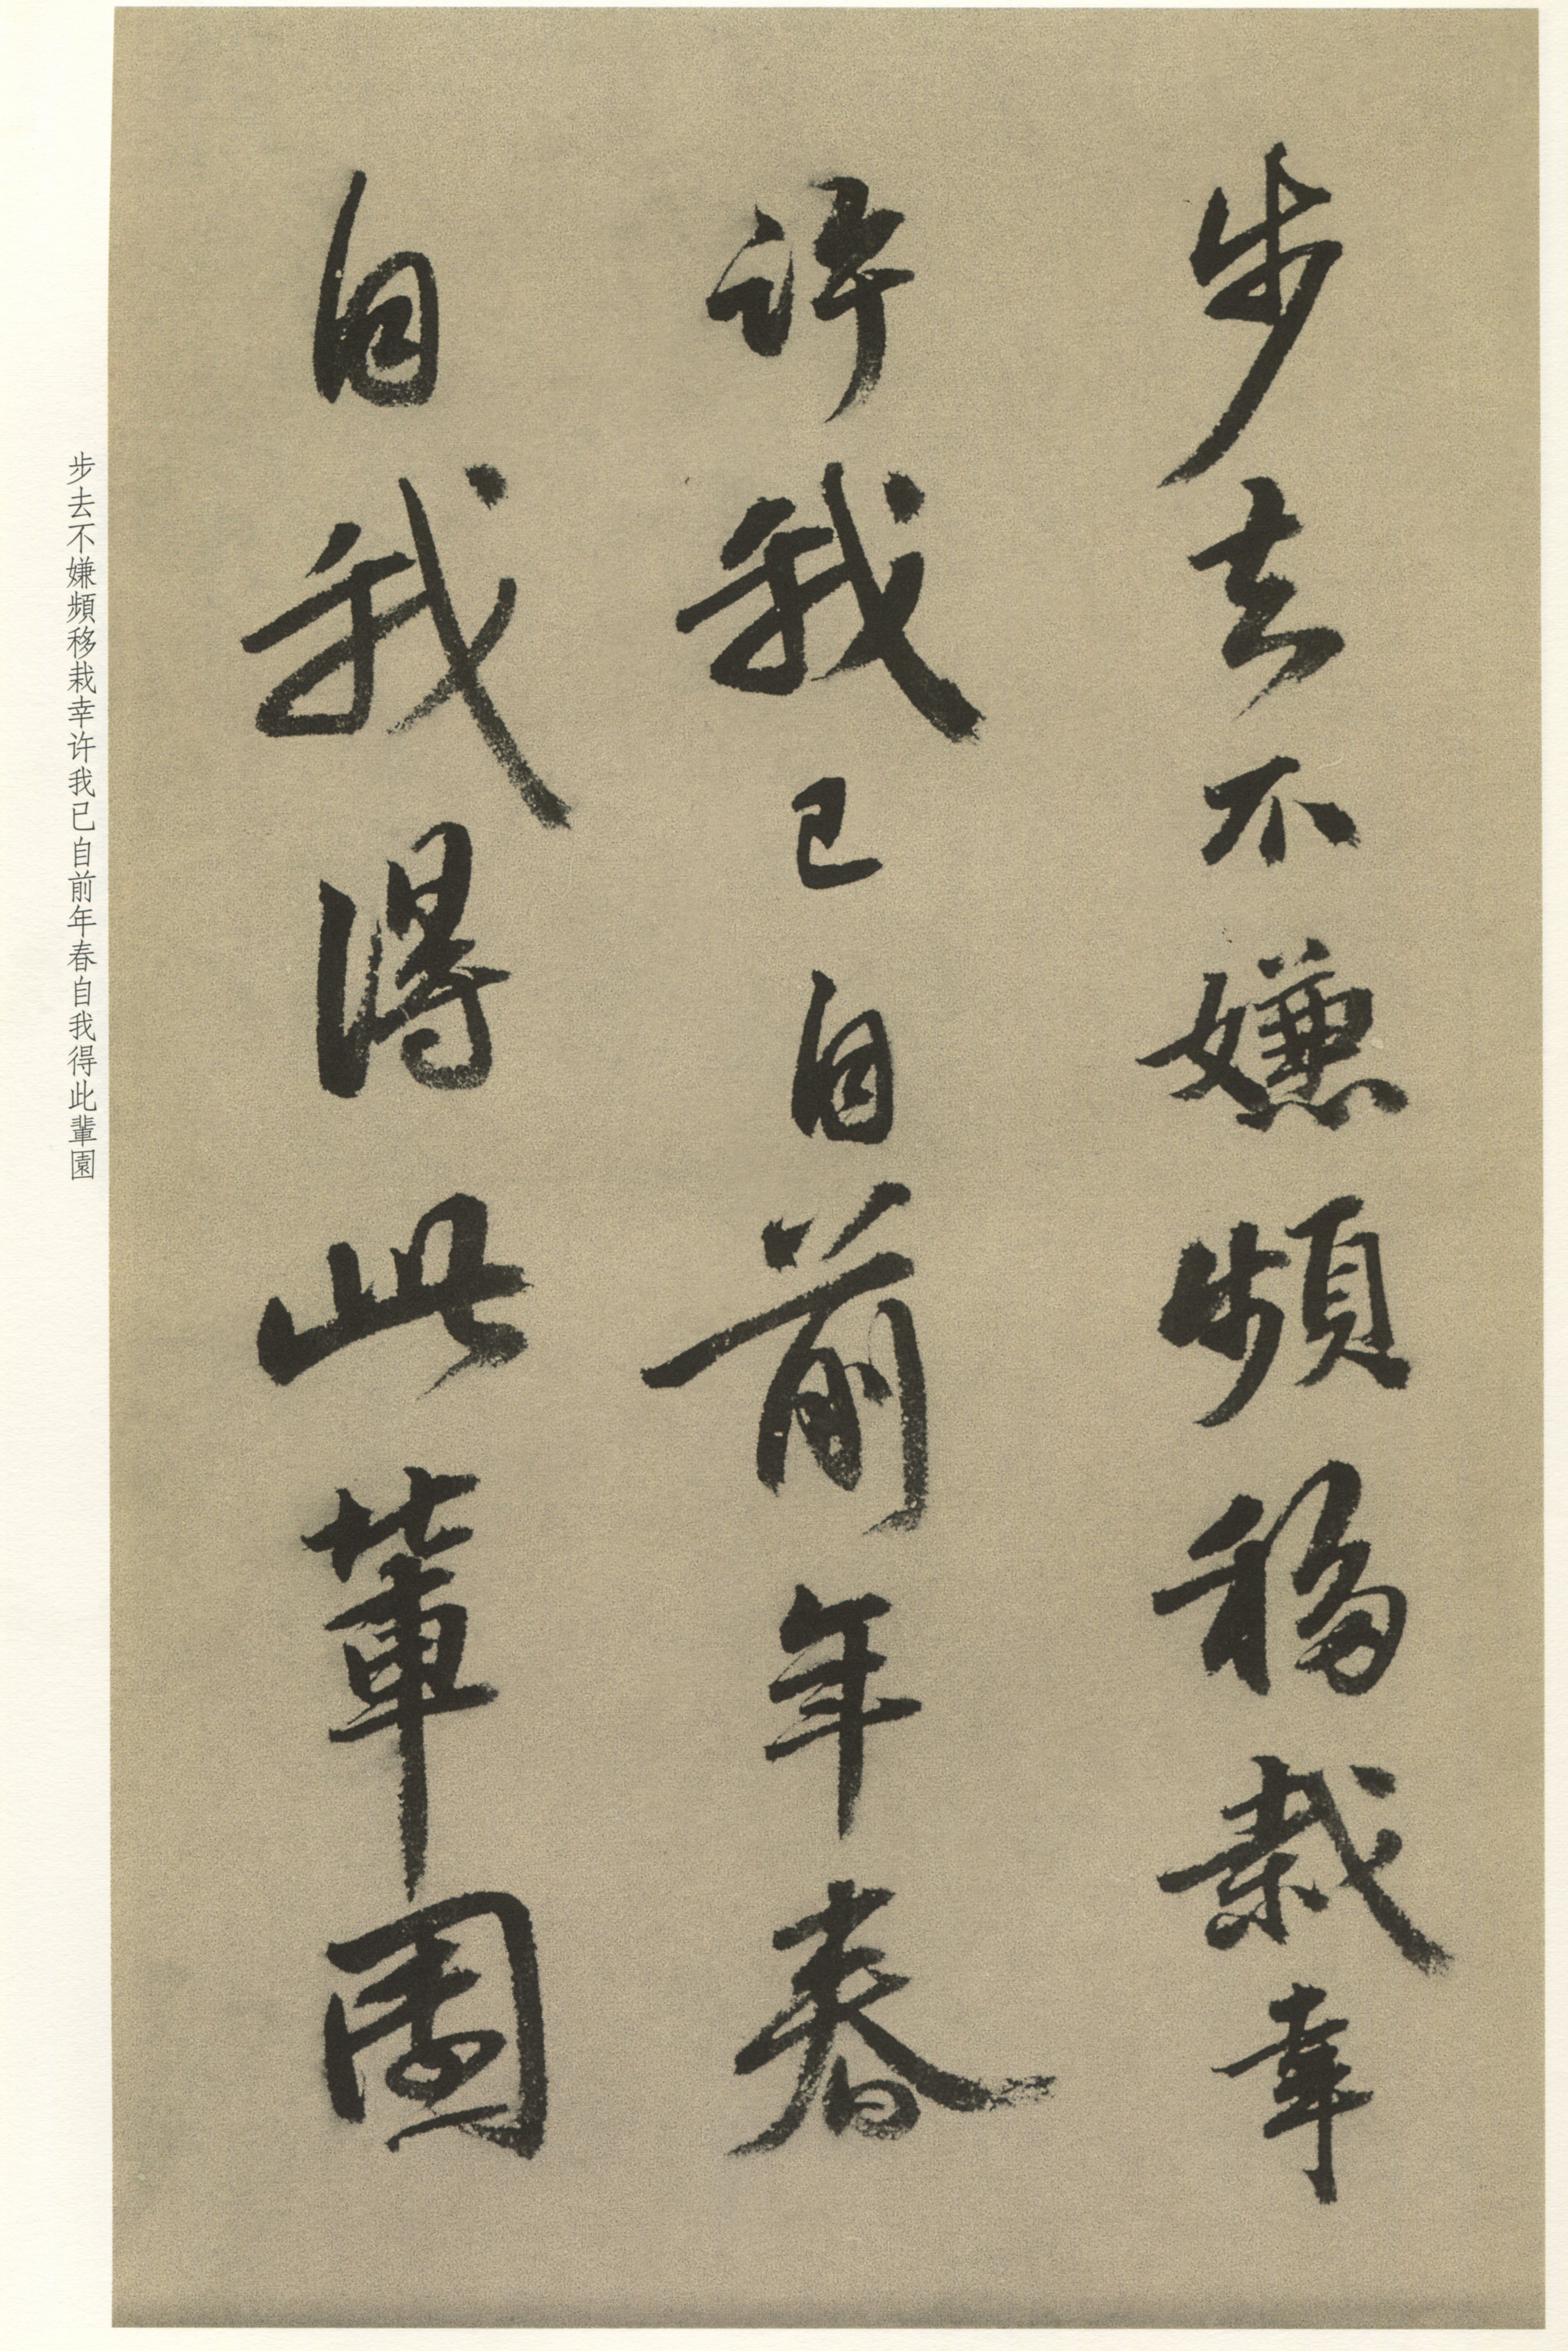 步去不嫌頻移栽幸
許我已自前年春
自我得此輩園
步去不嫌頻移栽幸许我已自前年春自我得此輩園